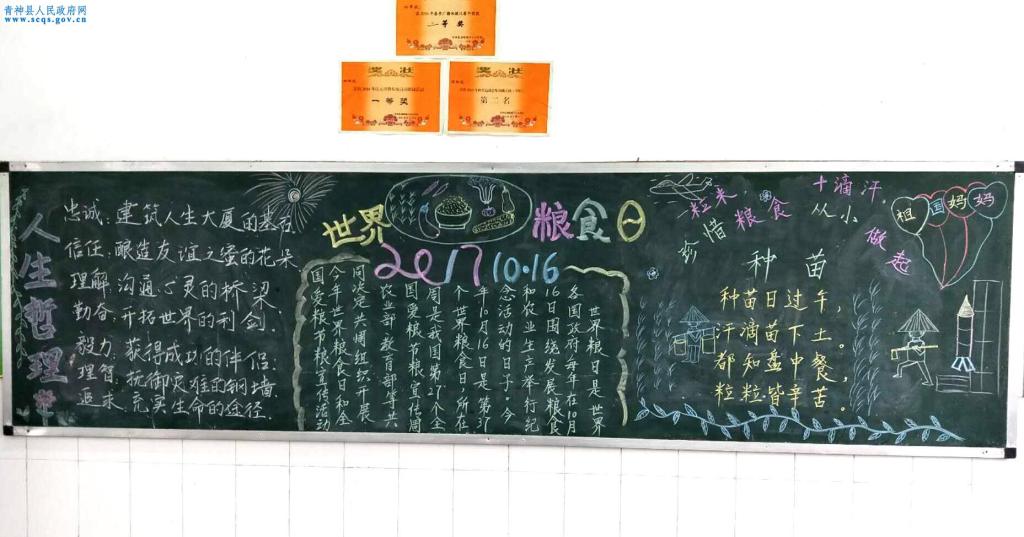 青神县人民政府网
www.scqs.gov.cn
二等奖
奖状
一等奖
奖状
第二名
人生哲理
忠诚：建筑人生大厦的基石
信任：酿造友谊之蜜的花朵
理解：沟通心灵的桥梁
勤奋：开拓世界的利剑
毅力：获得成功的伴侣；
理智：抗御灾难的钢墙
追求：充实生命的途径
世界粮食日
2017 10.16
世界粮食日是世界
各国政府每年在10月
16日围绕发展粮食
和农业生产举行纪
念活动的日子。今
年10月16日是第37
个世界粮食日，所在
周是我国第27个全
国爱粮节粮宣传周
农业部、教育部等共
同决定共同组织开展
今年世界粮食日和全
国爱粮节粮宣传活动
一粒米，十滴汗，
珍惜粮食从小做起
种苗
种苗日过午，
汗滴苗下土。
都知盘中餐，
粒粒皆辛苦。
祖国妈妈